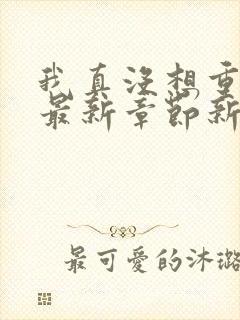 我真没想重
最新章节新
最可爱的沐璐